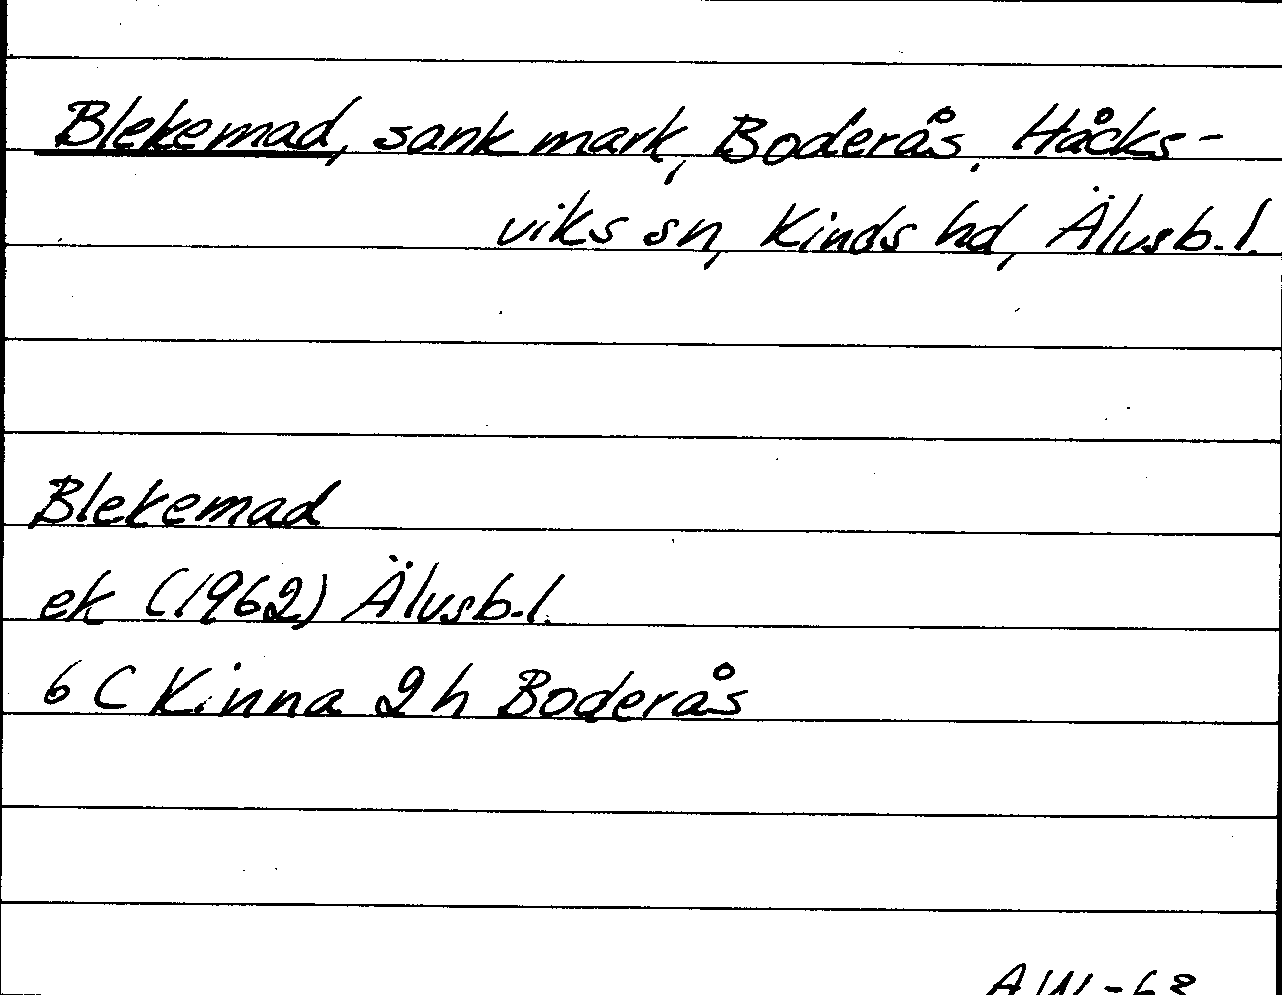 Blekemad, sank mark, Boderås, Håcks-
viks sn, Kinds hd, Älvsb.l.
Blekemad
ek (1962) Älvsb.l.
6 C Kinna 2 h Boderås